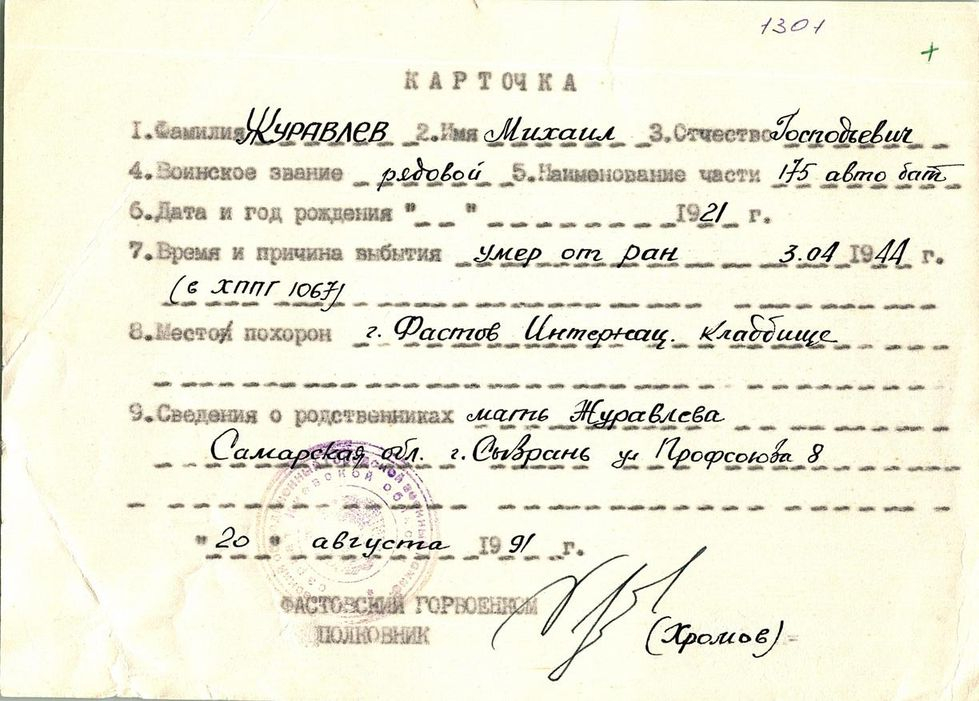 1301
+
КАРТОЧКА
1.Фамилия ЖУРАВЛЕВ 2.Имя Михаил 3.Отчество Господьевич
4.Воинское звание рядовой 5.Наименование части 175 авто бат
6.Дата и год рождения " " 1921 г.
7.Время и причина выбытия умер от ран 3.04 1944 г.
(в ХППГ 1067)
8.Место похорон г. Фастов Интернац. кладбище
9.Сведения о родственниках мать Журавлева
Самарская обл. г. Сызрань ул Профсоюза 8
"20" августа 1991 г.
ФАСТОВСКИЙ ГОРВОЕНКОМ
ПОЛКОВНИК (Хромов)